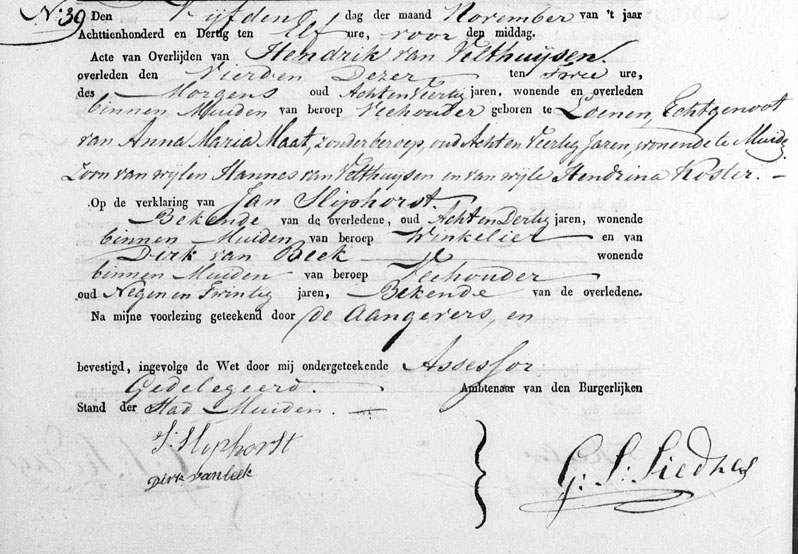 N: 39 Den Vijfden dag der maand November van 't jaar
Achttienhonderd en Dertig ten Elf ure, voor den middag.
Acte van Overlijden van Hendrik van Velthuijsen.
overleden den Vierden Dezer ten Twee ure,
des Morgens oud Acht en Veertig jaren, wonende en overleden
binnen Muiden van beroep Veehouder geboren te Loenen, Echtgenoot
van Anna Maria Maat, zonder beroep, oud Acht en Veertig Jaren, wonende te Muide
Zoon van wijlen Hannes van Velthuijsen en van wijle Hendrina Koster.
Op de verklaring van Jan Sliphorst.
Bekende van de overledene, oud Acht en Dertig jaren, wonende
binnen Muiden van beroep Winkelier en van
Dirk van Beek wonende
binnen Muiden van beroep Veehouder
oud Negen en Twintig jaren, Bekende van de overledene.
Na mijne voorlezing geteekend door de Aangevers, en
bevestigd, ingevolge de Wet door mij ondergeteekende Assessor
Gedelegeerd. Ambtenaar van den Burgerlijken
Stand der Stad Muiden.
J: Sliphorst
Dirk van beek
G: S: